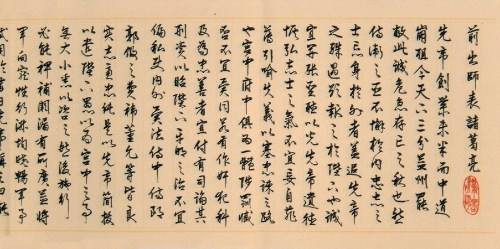 前出師表 諸葛亮
先帝創業未半而中道
崩殂今天下三分益州罷
敝此誠危急存亡之秋也然
侍衛之臣不懈於内忠志之
士忘身於外者蓋追先帝
之殊遇報之於陛下也誠
宜開張聖聽以光先帝遺德
恢弘志士之氣不宜妄自菲
薄引喻失義以塞忠諫之路
也宮中府中俱為一體陟罰臧
否不宜異同若有作奸犯科
及為忠善者宜付有司論其
刑賞以昭陛下平明之治不宜
偏私使内外異法侍中侍郎
郭攸之費禕董允等皆良
實志慮忠純是以先帝簡拔
以遺陛下愚以為宮中之事
無大小悉以咨之然後施行
必能裨補闕漏有所廣益將
軍向寵性行淑均曉暢軍事
試用於昔日先帝稱之曰能